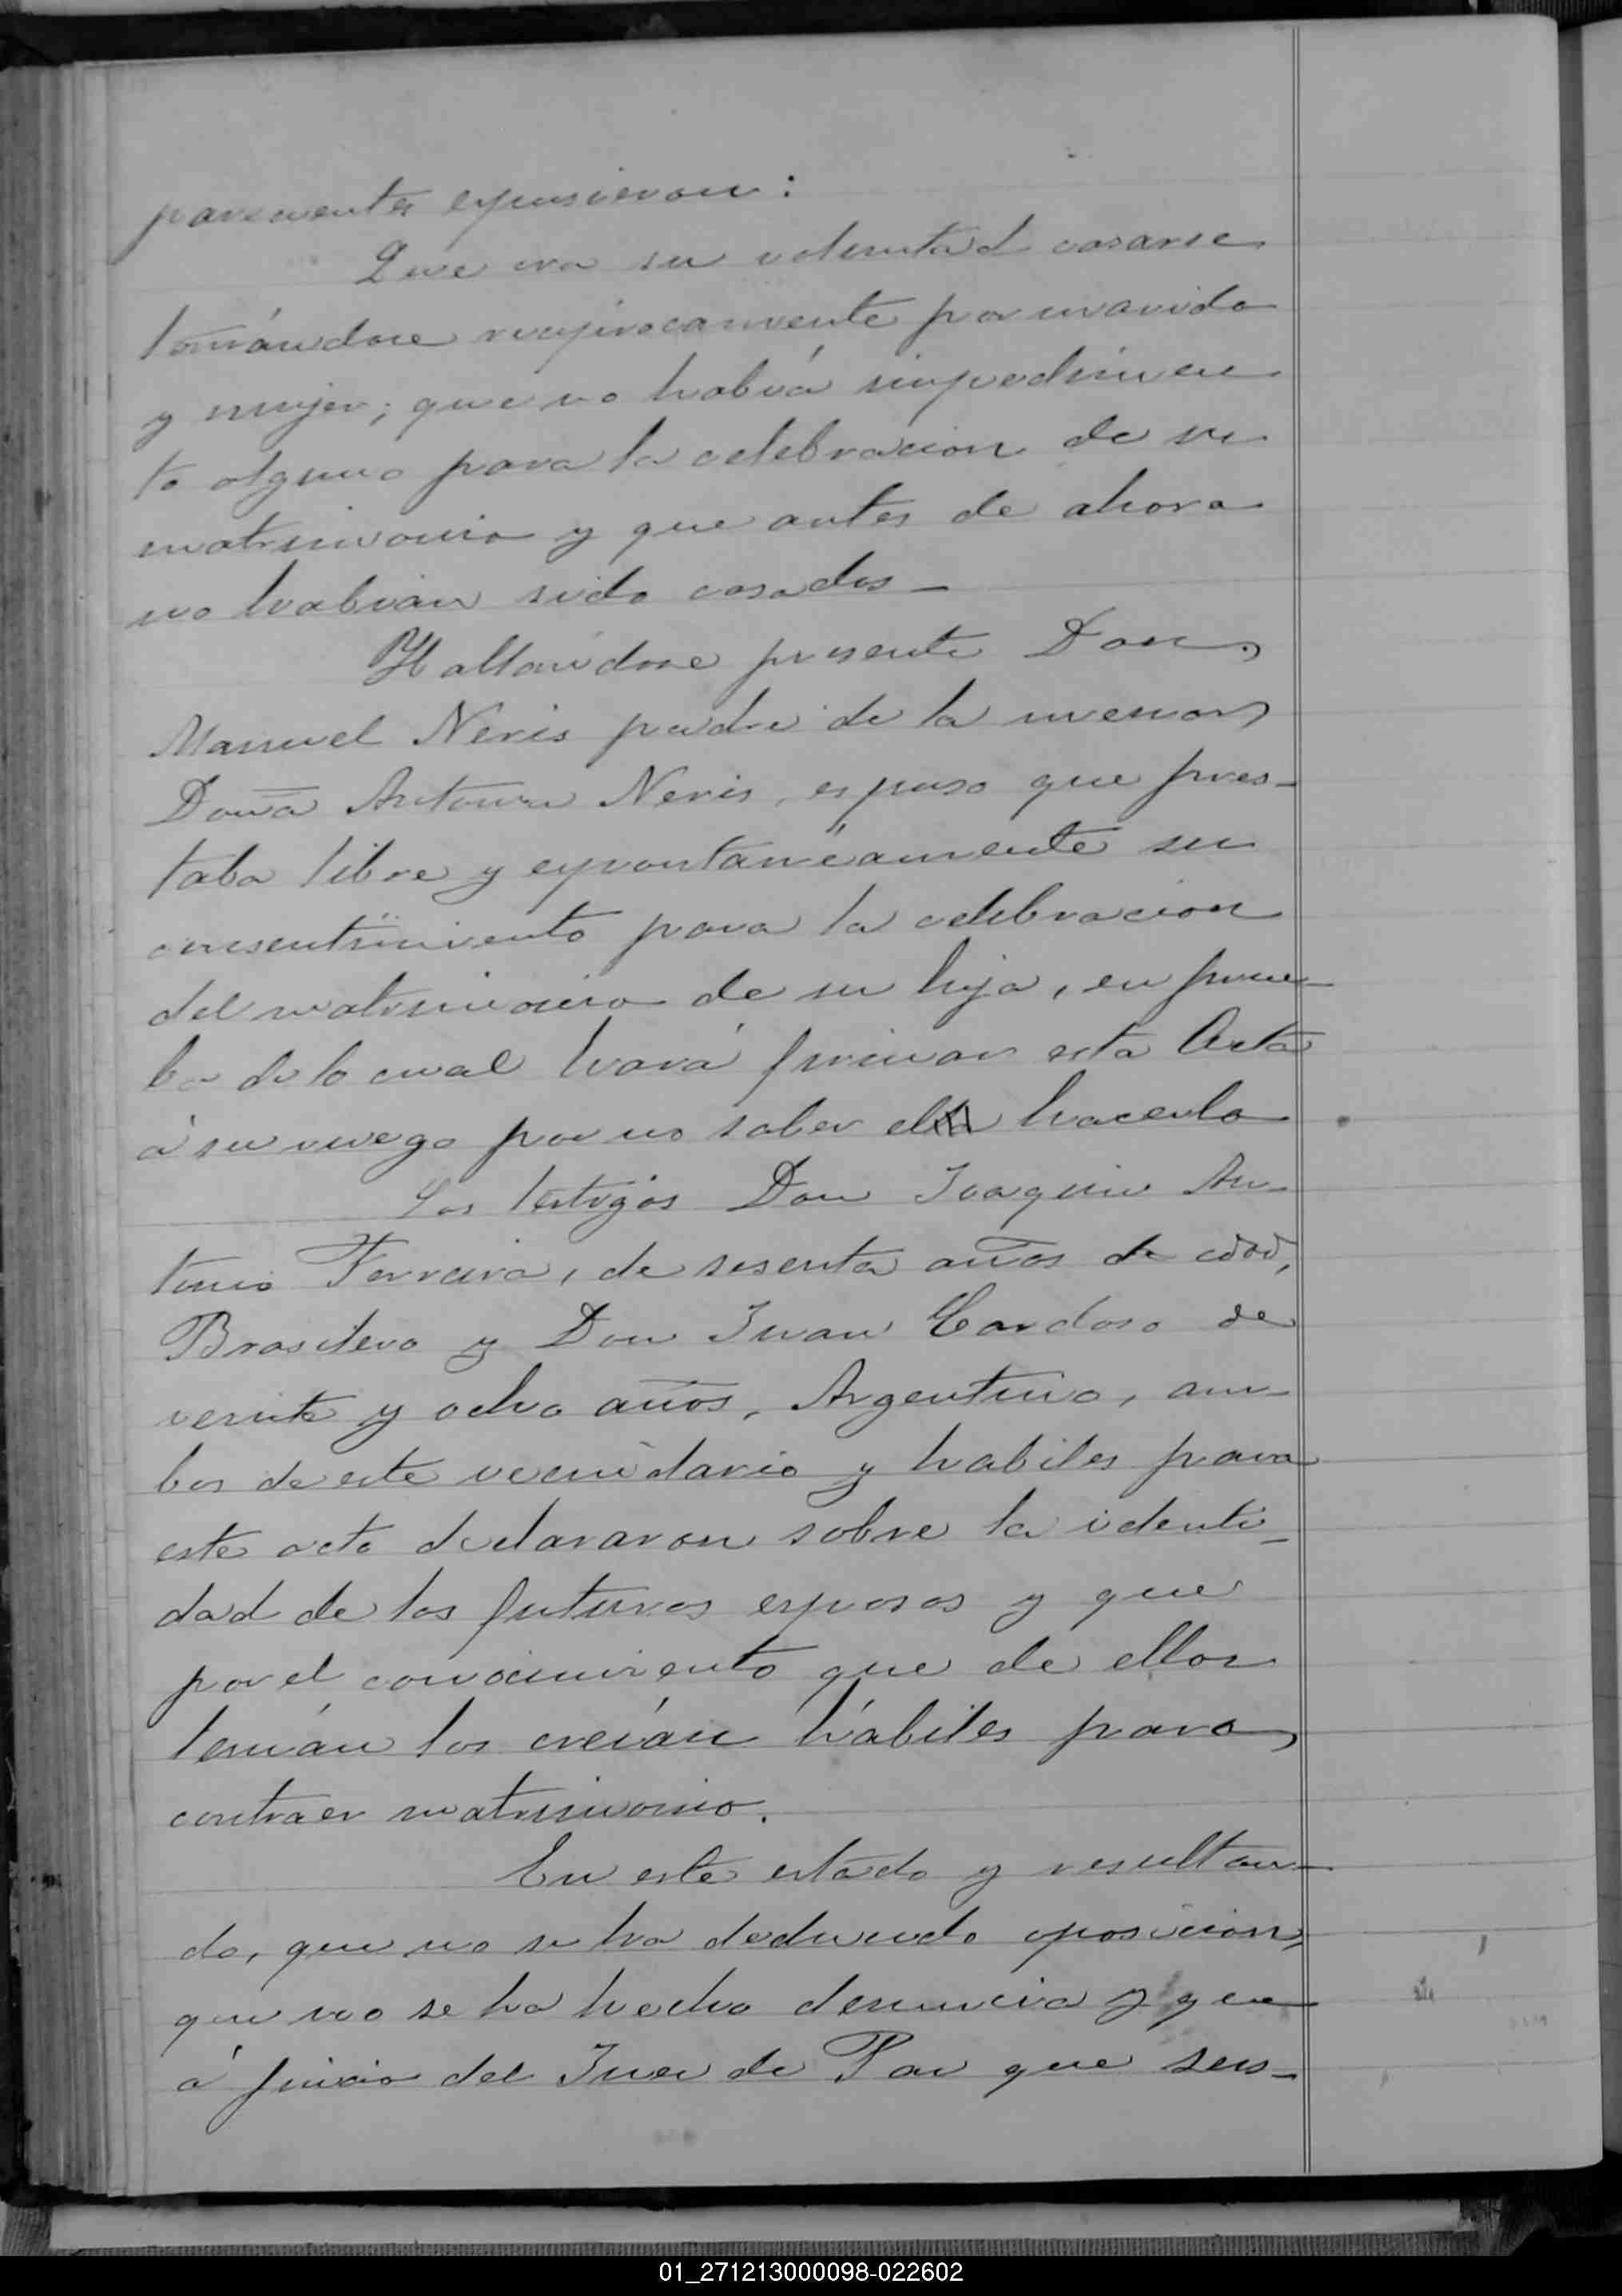 parecientes expusieron:
Que era su voluntad casarse
tomándose reciprocamente por marido
y mujer; que no habiá impedimen
to alguno para la celebracion de su
matrimonio y que antes de ahora
no habian sido casados—
Hallandose presente Don
Manuel Neris padre de la menor
Doña Antonia Neris, espuso que pres-
taba libre y espontaneamente su
consentimiento para la celebracion
del matrimonio de su hija, en prue-
ba de lo cual hará firmar esta Acta
á su ruego por no saber el hacerlo
Los testigos Don Joaquin An-
tonio Ferreira, de sesenta años de edad,
Brasilero y Don Juan Cardoso de
veinte y ocho años, Argentino, am-
bos de este vecindario y habiles para
este acto declararon sobre la identi-
dad de los futuros esposos y que
por el conocimiento que de ellos
tenián los creián hábiles para
contraer matrimonio.
En este estado y resultan-
do, que no se ha deducido oposicion,
que no se ha hecho denuncia y que
á juicio del Juez de Paz que sus-
01_271213000098-022602